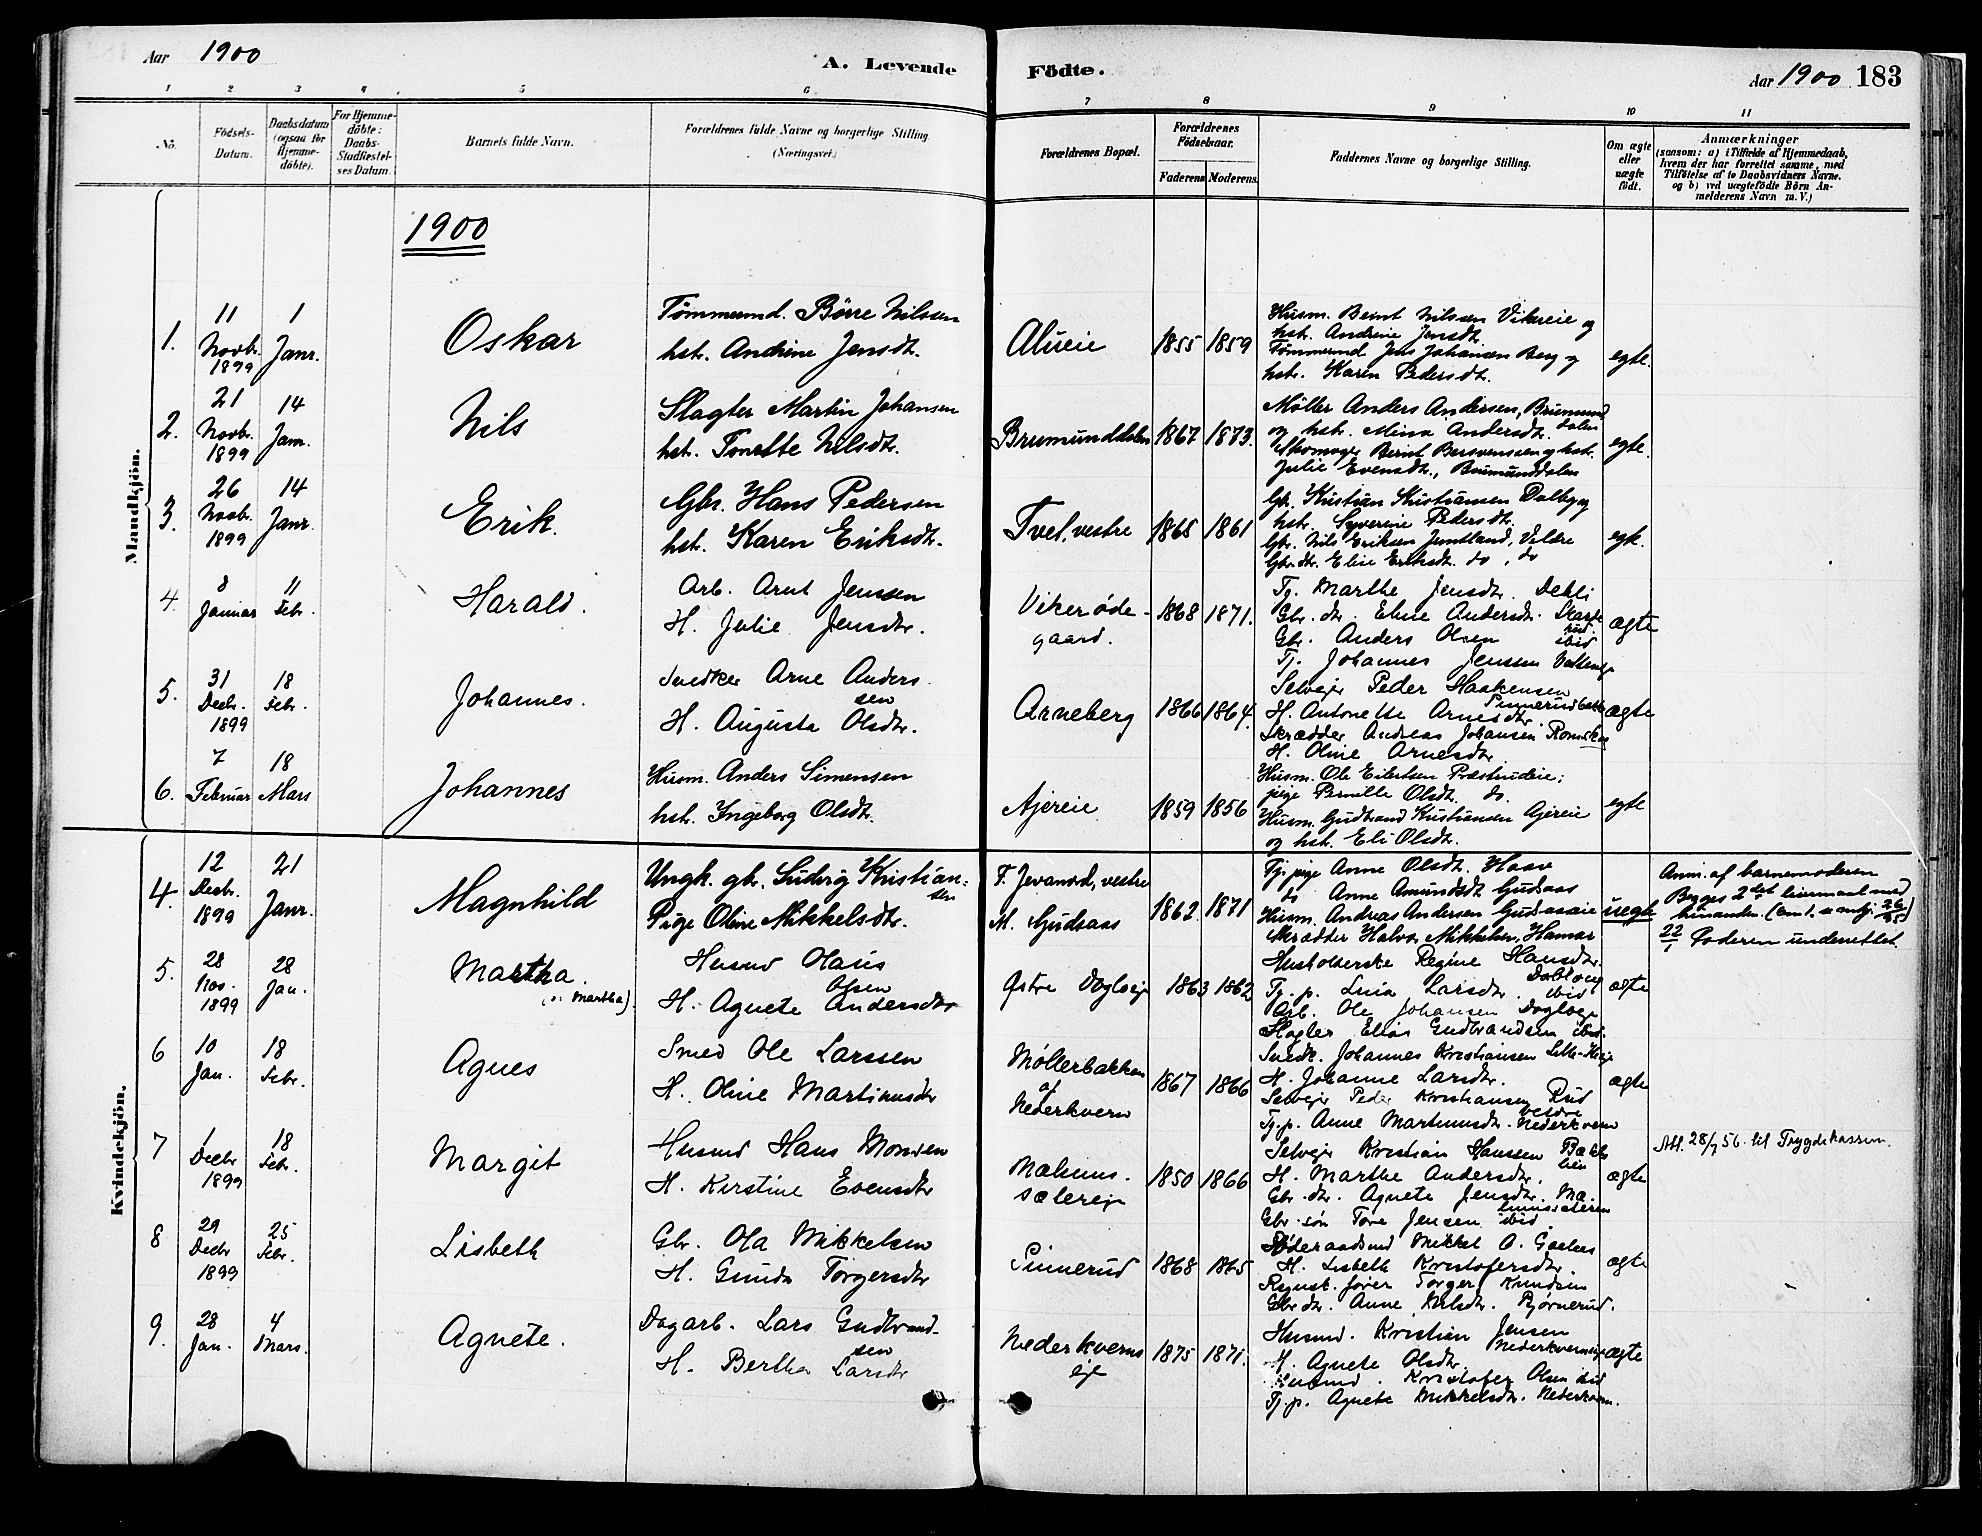 Aar 1900
A. Levende
Födte.
Aar 1900 183
1 2 3 4 5 6 7 8 9 10 11
No.
Födsels-
Datum.
Daabsdatum
(ogsaa for
Hjemme-
døbte).
For Hjemme-
döbte:
Daabs-
Stadfæstel-
ses Datum.
Barnets fulde Navn.
Forældrenes fulde Navne og borgerlige Stilling.
(Næringsvei.)
Forældrenes Bopæl.
Forældrenes
Födselsaar.
Faderens Moderens.
Faddernes Navne og borgerlige Stilling.
Om ægte
eller
uægte
födt.
Anmærkninger
(saasom: a) i Tilfælde af Hjemmedaab,
hvem der har forrettet samme, med
Tilföielse af to Daabsvidners Navne.
og b) ved uægtefödte Börn An-
melderens Navn m. V.)
1900
Mandkjön.
1.
11
Novbr.
1899
1
Janr.
Oskar
Tømmermd. Børre Nilssen
hst. Andrine Jensdt.
Alueie
1855 1859
Husm. Bernt Nilssen Vikereie og
hst. Andrine Jensdt.
Tømmermd Jens Johansen Berg og
hst. Karen Pedersdt.
egte.
2.
21
Novbr.
1899
14
Janr.
Nils
Slagter Martin Johansen
hst. Tonette Nilsdt.
Brumunddalen
1867 1873.
Møller Anders Andersen, Brumund
dalen
og hst. Mina Andersdt.
Skomager Bernt Bersvenssen og hst.
Julie Evensdt., Brumunddalen
egte.
3.
26
Novbr.
1899
14
Janr.
Erik.
Gbr. Hans Pedersen
hst. Karen Eriksdt.
Tvet, vestre
1865 1861
Gbr. Kristian Kristiansen Dalby og
hst. Syverine Pedersdt.
Gbr. Nils Eriksen Jemtland, Veldre
Gbr. dt. Elise Eriksdt. do, do
egte.
4.
8
Januar
11
Febr.
Harald.
Arb. Arnt Jenssen
H. Julie Jensdtr.
Vikerøde-
gaard.
1868 1871.
Tj. Marthe Jensdt. Dehli
Gbr. dtr. Eline Andersdt.
Gbr. Anders Olsen ibid
Tj. Johannes Jenssen
ægte
5.
31
Decbr.
1899
18
Febr.
Johannes.
Snedker Arne Anders
sen
H. Augusta Olsdtr.
Arneberg
1866 1864.
Selvejer Peder Haakensen
H. Antonette Arnesdtr
Skrædder Andreas Johansen
H. Oline Arnesdtr
ægte
6.
7
Februar
18
Mars
Johannes
Husm. Anders Simensen
hst. Ingeborg Olsdt.
Ajereie
1859 1856
Husm. Ole Eilertsen Præsterudeie;
pige Pernille Olsdt. do.
Husm. Gudbrand Kristiansen Ajereie
og hst. Eli Olsdt.
egte
Kvindekjön.
4.
12
Decbr.
1899
21
Janr.
Magnhild
Ungk. gbr. Ludvig Kristian-
sen
Pige Oline Mikkelsdtr.
F. Jevanord, vestre
M. Gudsaas
1862 1871
Tj. pige Anne Olsdt. Haave
do Anne Amundsdt Gudsaas
Husm. Andreas Andersen Gudsaaseie
Skrædder Halvor Mikkelsen, Hamar
uegte
Anm. af barnemoderen
Begges 2det leiermaal med
hinanden.
22/1 Faderen underrettet.
5.
28
Nov.
1899
28
Jan.
Martha.
(: Martha).
Husmd Hans
Olsen
H. Agnete Andersdtr
Østre Dogloeje
1863 1862
Husholderske Regine Hansdtr.
Tj. p. Lina Larsdtr. ibid
Arb. Ole Johansen Dogloeje
Slagter Elias Gudbrandsen ibid.
ægte
6
10
Jan.
18
Febr.
Agnes
Smed Ole Larssen
H. Oline Martinusdtr
Møllerbakken
af
Nederkvern
1867 1866
Snedk. Johannes Kristiansen
H. Johanne Larsdtr.
Selvejer Peder Kristiansen Rud
vestre
Tj. p. Anne Martinusdt. Nederkvern
ægte
7
1
Decbr
1899
18
Febr.
Margit
Husmd Hans Monsen
H. Kerstine Evensdtr
Mælums-
sætereje
1850 1866
Selvejer Kristian Hanssen
H. Marthe Andersdtr.
Gbr. dtr. Agnete Jensdtr. Mæ-
lumssæteren
Gbr. søn Tore Jensen ibid
ægte
Att. 28/7 56. til Trygdekassen.
8
29
Decbr
1899
25
Febr.
Lisbeth
Gbr. Ola Mikkelsen
H. Gunda Torgersdtr
Sinnerud
1868 1865
Föderaadsmd Mikkel O.
H. Lisbeth Kristofersdtr.
Torger Knudsen
Gbr dtr. Anne Nilsdtr. Bjørnerud.
ægte
9.
28
Jan.
4
Mars.
Agnete.
Dagarb. Lars Gudbrand-
sen
H. Bertha Larsdtr
Nederkverns
eje
1875 1871.
Husmd. Kristian Jensen
Nederkvernseje
H. Agnete Olsdtr.
Husmd. Kristofer Olsen ibid
Tj. p. Agnete Mikkelsdtr. Nederkvern.
ægte